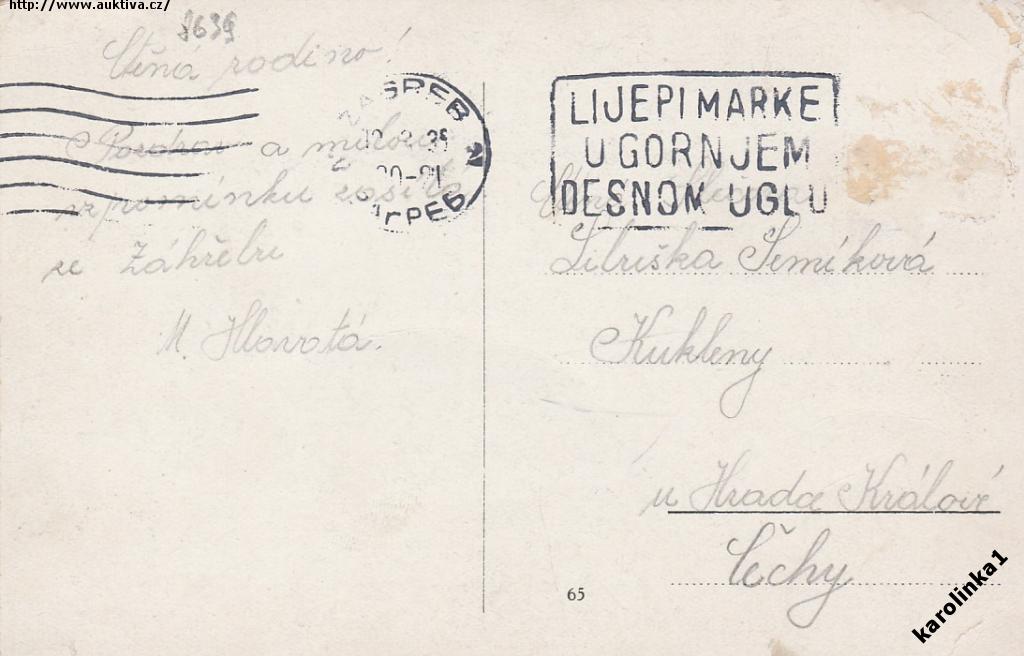 http://www.auktiva.cz/
8639
Ctěná rodino!
Pozdrav a milou
vzpomínku zasílá
ze Záhřebu
M. Hlavatá.
ZAGREB
20-21
ЗАГРЕБ
LIJEPI MARKE
U GORNJEM
DESNOM UGLU
Libuška Semíková
Kukleny
u Hradce Králové
Čechy
65
karolinka1